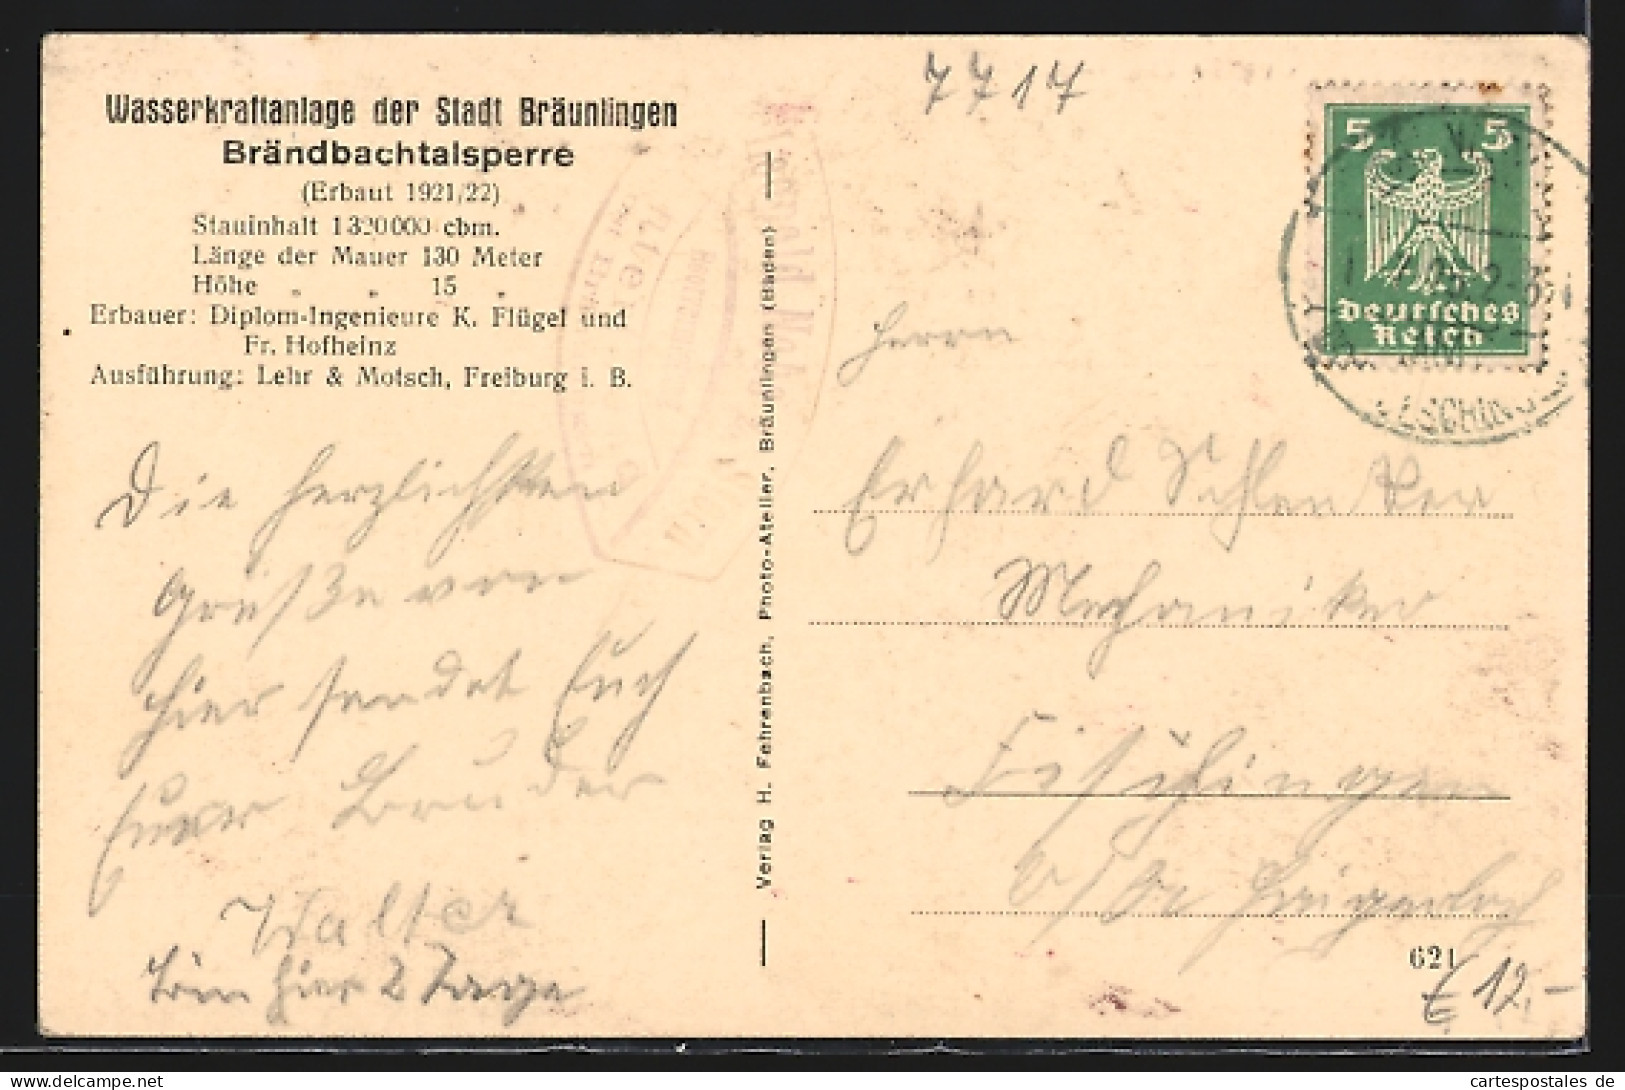 7717
Wasserkraftanlage der Stadt Bräunlingen
Brändbachtalsperre
(Erbaut 1921/22)
Stauinhalt 1320000 cbm.
Länge der Mauer 130 Meter
Höhe „ „ 15 „
Erbauer: Diplom-Ingenieure K. Flügel und
Fr. Hofheinz
Ausführung: Lehr & Motsch, Freiburg i. B.
Die herzlichsten
Grüße von
hier sendet Euch
Euer Bruder
Walter
bin hier 2 Tage
Verlag H. Fehrenbach, Photo-Atelier, Bräunlingen (Baden)
5 5
Deutsches
Reich
Herrn
Erhard Schlenker
Mechaniker
Fischingen
b/
621
€ 12,-
cartespostales.de
www.delcampe.net